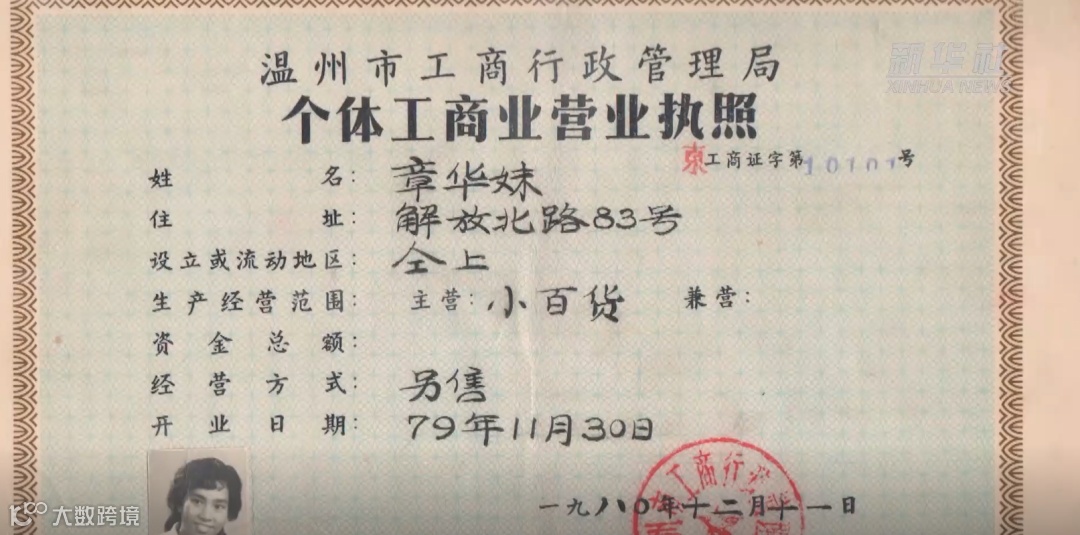 温州市工商行政管理局
新华社
XINHUA NEWS
个体工商业营业执照
东工商证字第10101号
姓名：章华妹
住址：解放北路83号
设立或流动地区：仝上
生产经营范围：主营：小百货 兼营：
资金总额：
经营方式：另售
开业日期：79年11月30日
工商行政
一九八〇年十二月十一日
大数跨境